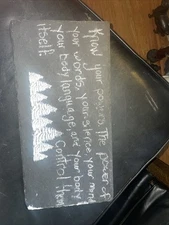 Know your powers. The power of
your words, your silence, your mind
your body language, and your body
itself. Control them